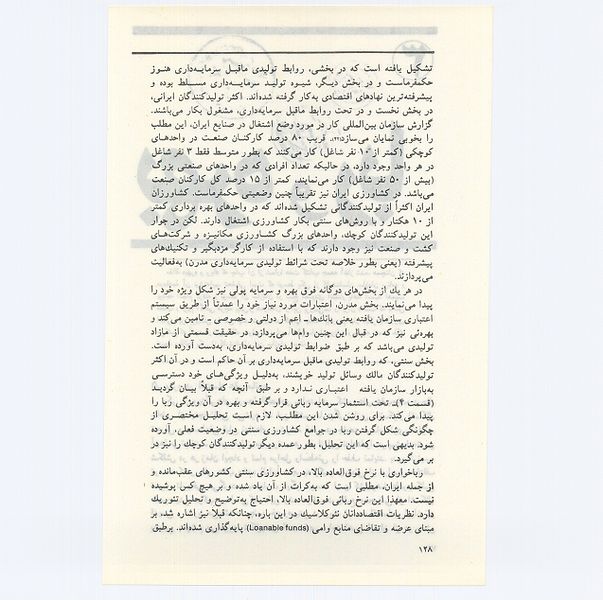 تشکیل یافته است که در بخشی، روابط تولیدی ماقبل سرمایه‌داری هنوز
حکمفرماست و در بخش دیگر، شیوه تولید سرمایه‌داری مسلط بوده و
پیشرفته‌ترین نهادهای اقتصادی به‌کار گرفته شده‌اند. اکثر تولیدکنندگان ایرانی،
در بخش نخست و در تحت روابط ماقبل سرمایه‌داری، مشغول بکار می‌باشند.
گزارش سازمان بین‌المللی کار در مورد وضع اشتغال در صنایع ایران، این مطلب
را بخوبی نمایان می‌سازد. قریب ۸۰ درصد کارکنان صنعت در واحدهای
کوچکی (کمتر از ۱۰ نفر شاغل) کار می‌کنند که بطور متوسط فقط ۳ نفر شاغل
در هر واحد وجود دارد، در حالیکه تعداد افرادی که در واحدهای صنعتی بزرگ
(بیش از ۵۰ نفر شاغل) کار می‌نمایند، کمتر از ۱۵ درصد کل کارکنان صنعت
می‌باشد. در کشاورزی ایران نیز تقریباً چنین وضعیتی حکمفرماست. کشاورزان
ایران اکثراً از تولیدکنندگانی تشکیل شده‌اند که در واحدهای بهره برداری کمتر
از ۱۰ هکتار و با روش‌های سنتی بکار کشاورزی اشتغال دارند. لکن در جوار
این تولیدکنندگان کوچك، واحدهای بزرگ کشاورزی مکانیزه و شرکت‌های
کشت و صنعت نیز وجود دارند که با استفاده از کارگر مزدبگیر و تکنیك‌های
پیشرفته (یعنی بطور خلاصه تحت شرائط تولیدی سرمایه‌داری مدرن) به‌فعالیت
می‌پردازند.
در هر یك از بخش‌های دوگانه فوق بهره و سرمایه پولی نیز شکل ویژه خود را
پیدا می‌نمایند. بخش مدرن، اعتبارات مورد نیاز خود را عمدتاً از طریق سیستم
اعتباری سازمان یافته یعنی بانك‌ها ـ اعم از دولتی و خصوصی ـ تامین می‌کند و
بهره‌ئی نیز که در قبال این چنین وام‌ها می‌پردازد، در حقیقت قسمتی از مازاد
تولیدی می‌باشد که بر طبق ضوابط تولیدی سرمایه‌داری، به‌دست آورده است.
بخش سنتی، که روابط تولیدی ماقبل سرمایه‌داری بر آن حاکم است و در آن اکثر
تولیدکنندگان مالك وسائل تولید خویشند، به‌دلیل ویژگی‌های خود دسترسی
به‌بازار سازمان یافته اعتباری ندارد و بر طبق آنچه که قبلاً بیان گردید
(قسمت ۴)ـ تحت استثمار سرمایه ربائی قرار گرفته و بهره در آن ویژگی ربا را
پیدا می‌کند. برای روشن شدن این مطلب، لازم است تحلیل مختصری از
چگونگی شکل گرفتن ربا در جوامع کشاورزی سنتی در وضعیت فعلی، آورده
شود. بدیهی است که این تحلیل، بطور عمده دیگر تولیدکنندگان کوچك را نیز در
بر می‌گیرد.
رباخواری با نرخ فوق‌العاده بالا، در کشاورزی سنتی کشورهای عقب‌مانده و
از جمله ایران، مطلبی است که به‌کرات از آن یاد شده و بر هیچ کس پوشیده
نیست. معهذا این نرخ ربائی فوق‌العاده بالا، احتیاج به‌توضیح و تحلیل تئوریك
دارد. نظریات اقتصاددانان نئوکلاسیك در این باره، چنانکه قبلاً نیز اشاره شد، بر
مبنای عرضه و تقاضای منابع وامی (Loanable funds) پایه‌گذاری شده‌اند. برطبق
۱۲۸